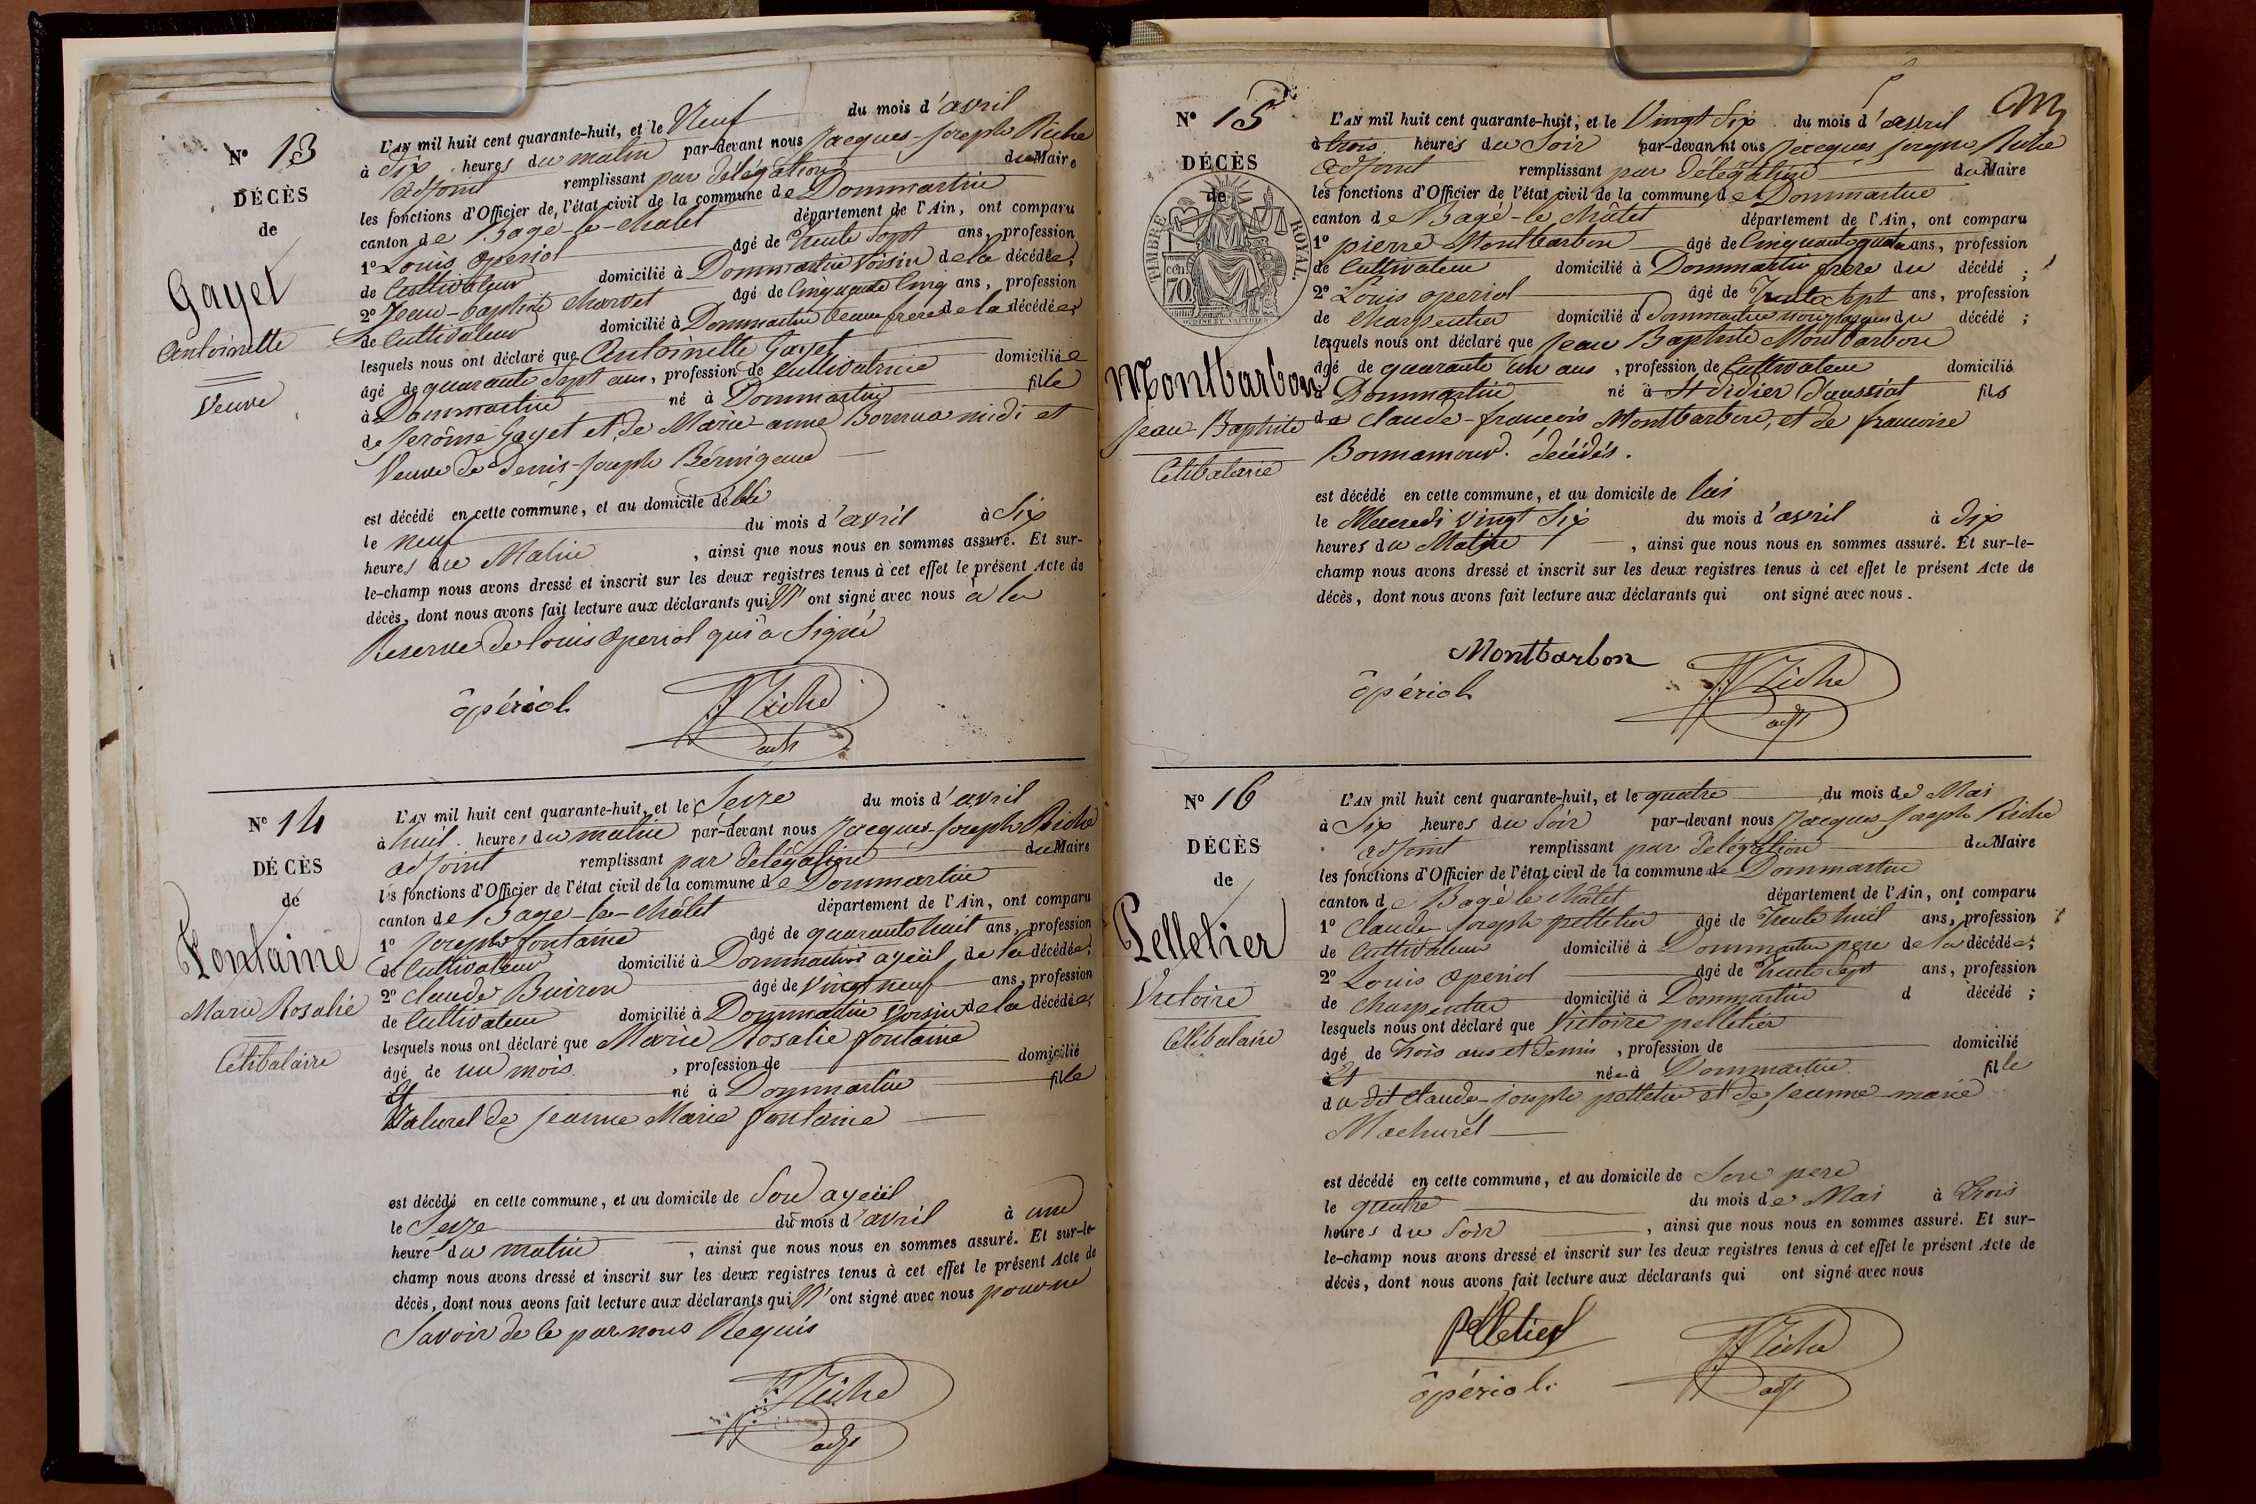 Nº 13
DÉCÈS
de
Gayet
Antoinette
Veuve
L'AN mil huit cent quarante-huit, et le Neuf du mois d'avril
à dix heures du matin par-devant nous Jacques-Joseph Riche
adjoint remplissant par délégation du Maire
les fonctions d'Officier de l'état civil de la commune de Dommartin
canton de Bagé-le-Châtel département de l'Ain, ont comparu
1º Louis Opériol âgé de trente sept ans, profession
de Cultivateur domicilié à Dommartin voisin de la décédée;
2º Jean-Baptiste Charvet âgé de Cinquante Cinq ans, profession
de Cultivateur domicilié à Dommartin beau frère de la décédée;
lesquels nous ont déclaré que Antoinette Gayet
âgé de quarante sept ans, profession de Cultivatrice domiciliée
à Dommartin né à Dommartin fille
de Jérôme Gayet et de Marie-anne et
Veuve de Denis-Joseph
est décédé en cette commune, et au domicile de
le neuf du mois d'avril à Six
heures du Matin, ainsi que nous nous en sommes assuré. Et sur-
le-champ nous avons dressé et inscrit sur les deux registres tenus à cet effet le présent Acte de
décès, dont nous avons fait lecture aux déclarants qui N'ont signé avec nous à la
Reserve de Louis Opériol qui a Signé
ôpériol
JJ Riche
adjt
Nº 14
DÉCÈS
de
Fontaine
Marie Rosalie
Célibataire
L'AN mil huit cent quarante-huit, et le Seize du mois d'avril
à huit heures du matin par-devant nous Jacques-Joseph Riche
adjoint remplissant par délégation du Maire
les fonctions d'Officier de l'état civil de la commune de Dommartin
canton de Bagé-le-Châtel département de l'Ain, ont comparu
1º Joseph fontaine âgé de quarante huit ans, profession
de Cultivateur domicilié à Dommartin ayeüil de la décédée;
2º Claude Buiron âgé de Vingt neuf ans, profession
de Cultivateur domicilié à Dommartin Voisin de la décédée;
lesquels nous ont déclaré que Marie Rosalie fontaine
âgé de un mois, profession de domicilié
et né à Dommartin fille
Naturel de Jeanne Marie fontaine
est décédé en cette commune, et au domicile de Son ayeüil
le Seize du mois d'avril à une
heure du matin, ainsi que nous nous en sommes assuré. Et sur-le-
champ nous avons dressé et inscrit sur les deux registres tenus à cet effet le présent Acte de
décès, dont nous avons fait lecture aux déclarants qui N'ont signé avec nous pour ne
Savoir de ce par nous Requis
JJ Riche
adjt
Nº 15
DÉCÈS
de
TIMBRE ROYAL.
70
Montbarbon
Jean-Baptiste
Célibatarie
L'AN mil huit cent quarante-huit, et le Vingt Six du mois d'avril
à trois heures du Soir par-devant nous Jacques Joseph Riche
adjoint remplissant par délégation du Maire
les fonctions d'Officier de l'état civil de la commune de Dommartin
canton de Bagé-le Châtel département de l'Ain, ont comparu
1º pierre Montbarbon âgé de Cinquante quatre ans, profession
de Cultivateur domicilié à Dommartin frère du décédé;
2º Louis opériol âgé de Trente Sept ans, profession
de Charpentier domicilié à Dommartin non parent du décédé;
lesquels nous ont déclaré que Jean Baptiste Montbarbon
âgé de quarante un ans, profession de Cultivateur domicilié
à Dommartin né à St didier d'aussiat fils
de Claude-françois Montbarbon, et de françoise
Bonnamour. décédés.
est décédé en cette commune, et au domicile de lui
le Mercredi vingt Six du mois d'avril à dix
heures du Matin, ainsi que nous nous en sommes assuré. Et sur-le-
champ nous avons dressé et inscrit sur les deux registres tenus à cet effet le présent Acte de
décès, dont nous avons fait lecture aux déclarants qui ont signé avec nous.
Montbarbon
ôpériol
JJ Riche
adjt
Nº 16
DÉCÈS
de
Pelletier
Victoire
Célibataire
L'AN mil huit cent quarante-huit, et le quatre du mois de Mai
à Six heures du Soir par-devant nous Jacques-Joseph Riche
adjoint remplissant par délégation du Maire
les fonctions d'Officier de l'état civil de la commune de Dommartin
canton de Bagé le Châtel département de l'Ain, ont comparu
1º Claude Joseph pelletier âgé de Trente huit ans, profession
de Cultivateur domicilié à Dommartin père de la décédée;
2º Louis opériol âgé de Trente Sept ans, profession
de Charpentier domicilié à Dommartin d décédé;
lesquels nous ont déclaré que Victoire pelletier
âgé de trois ans et demis, profession de domicilié
et née à Dommartin fille
du dit Claude-joseph pelletier et de Jeanne-marie
Machurel
est décédé en cette commune, et au domicile de Son père
le quatre du mois de Mai à trois
heures du Soir, ainsi que nous nous en sommes assuré. Et sur-
le-champ nous avons dressé et inscrit sur les deux registres tenus à cet effet le présent Acte de
décès, dont nous avons fait lecture aux déclarants qui ont signé avec nous
Pelletier
ôpériol
JJ Riche
adjt